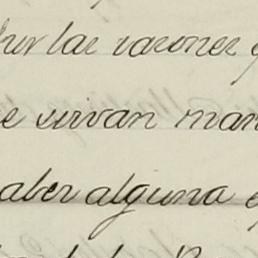 por las varones
se sirvan man
aber alguna e